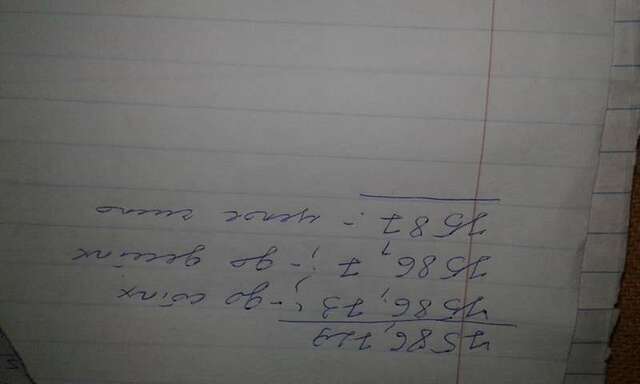 7586,729
7586,73 ;- до сотых
7586,7 ;- до десятых
7587 :- целое число